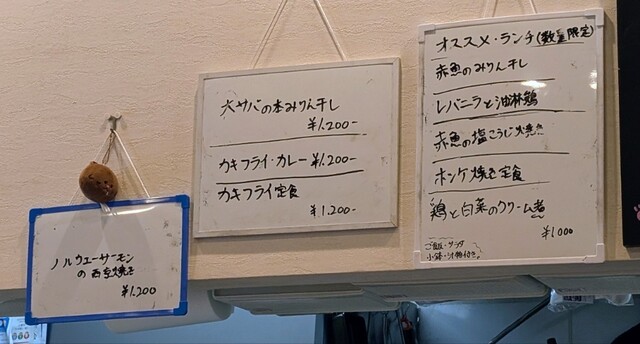 ノルウェーサーモン
の西京焼き
¥1.200
大サバの本みりん干し
¥1.200-
カキフライ・カレー ¥1.200-
カキフライ定食
¥1.200-
オススメ・ランチ(数量限定)
赤魚のみりん干し
レバニラと油淋鶏
赤魚の塩こうじ焼き
ホッケ焼き定食
鶏と白菜のクリーム煮
¥1.000
ご飯・サラダ
小鉢・汁物付き